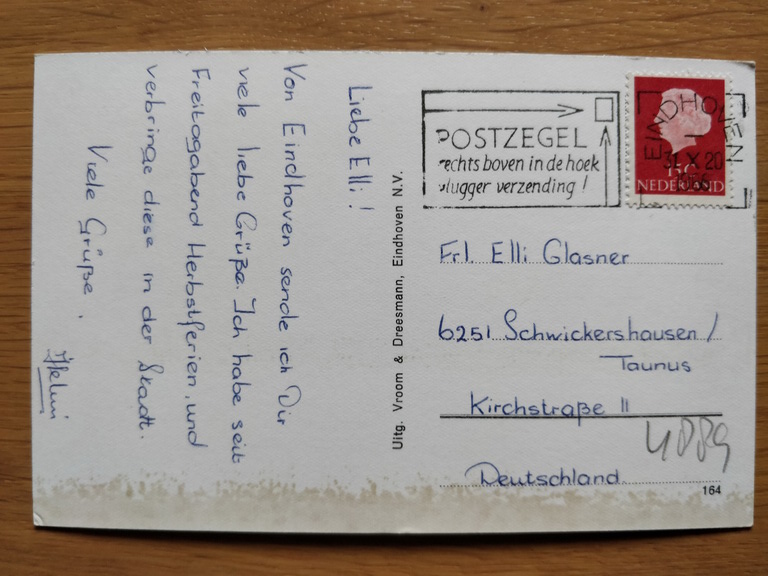 Liebe Elli!
Von Eindhoven sende ich Dir
viele liebe Grüße. Ich habe seit
Freitagabend Herbstferien, und
verbringe diese in der Stadt.
Viele Grüße,
Uitg. Vroom & Dreesmann, Eindhoven N.V.
POSTZEGEL
rechts boven in de hoek
vlugger verzending!
EINDHOVEN
31 X 20
NEDERLAND
Frl. Elli Glasner
6251 Schwickershausen/
Taunus
Kirchstraße 11
4889
Deutschland
164